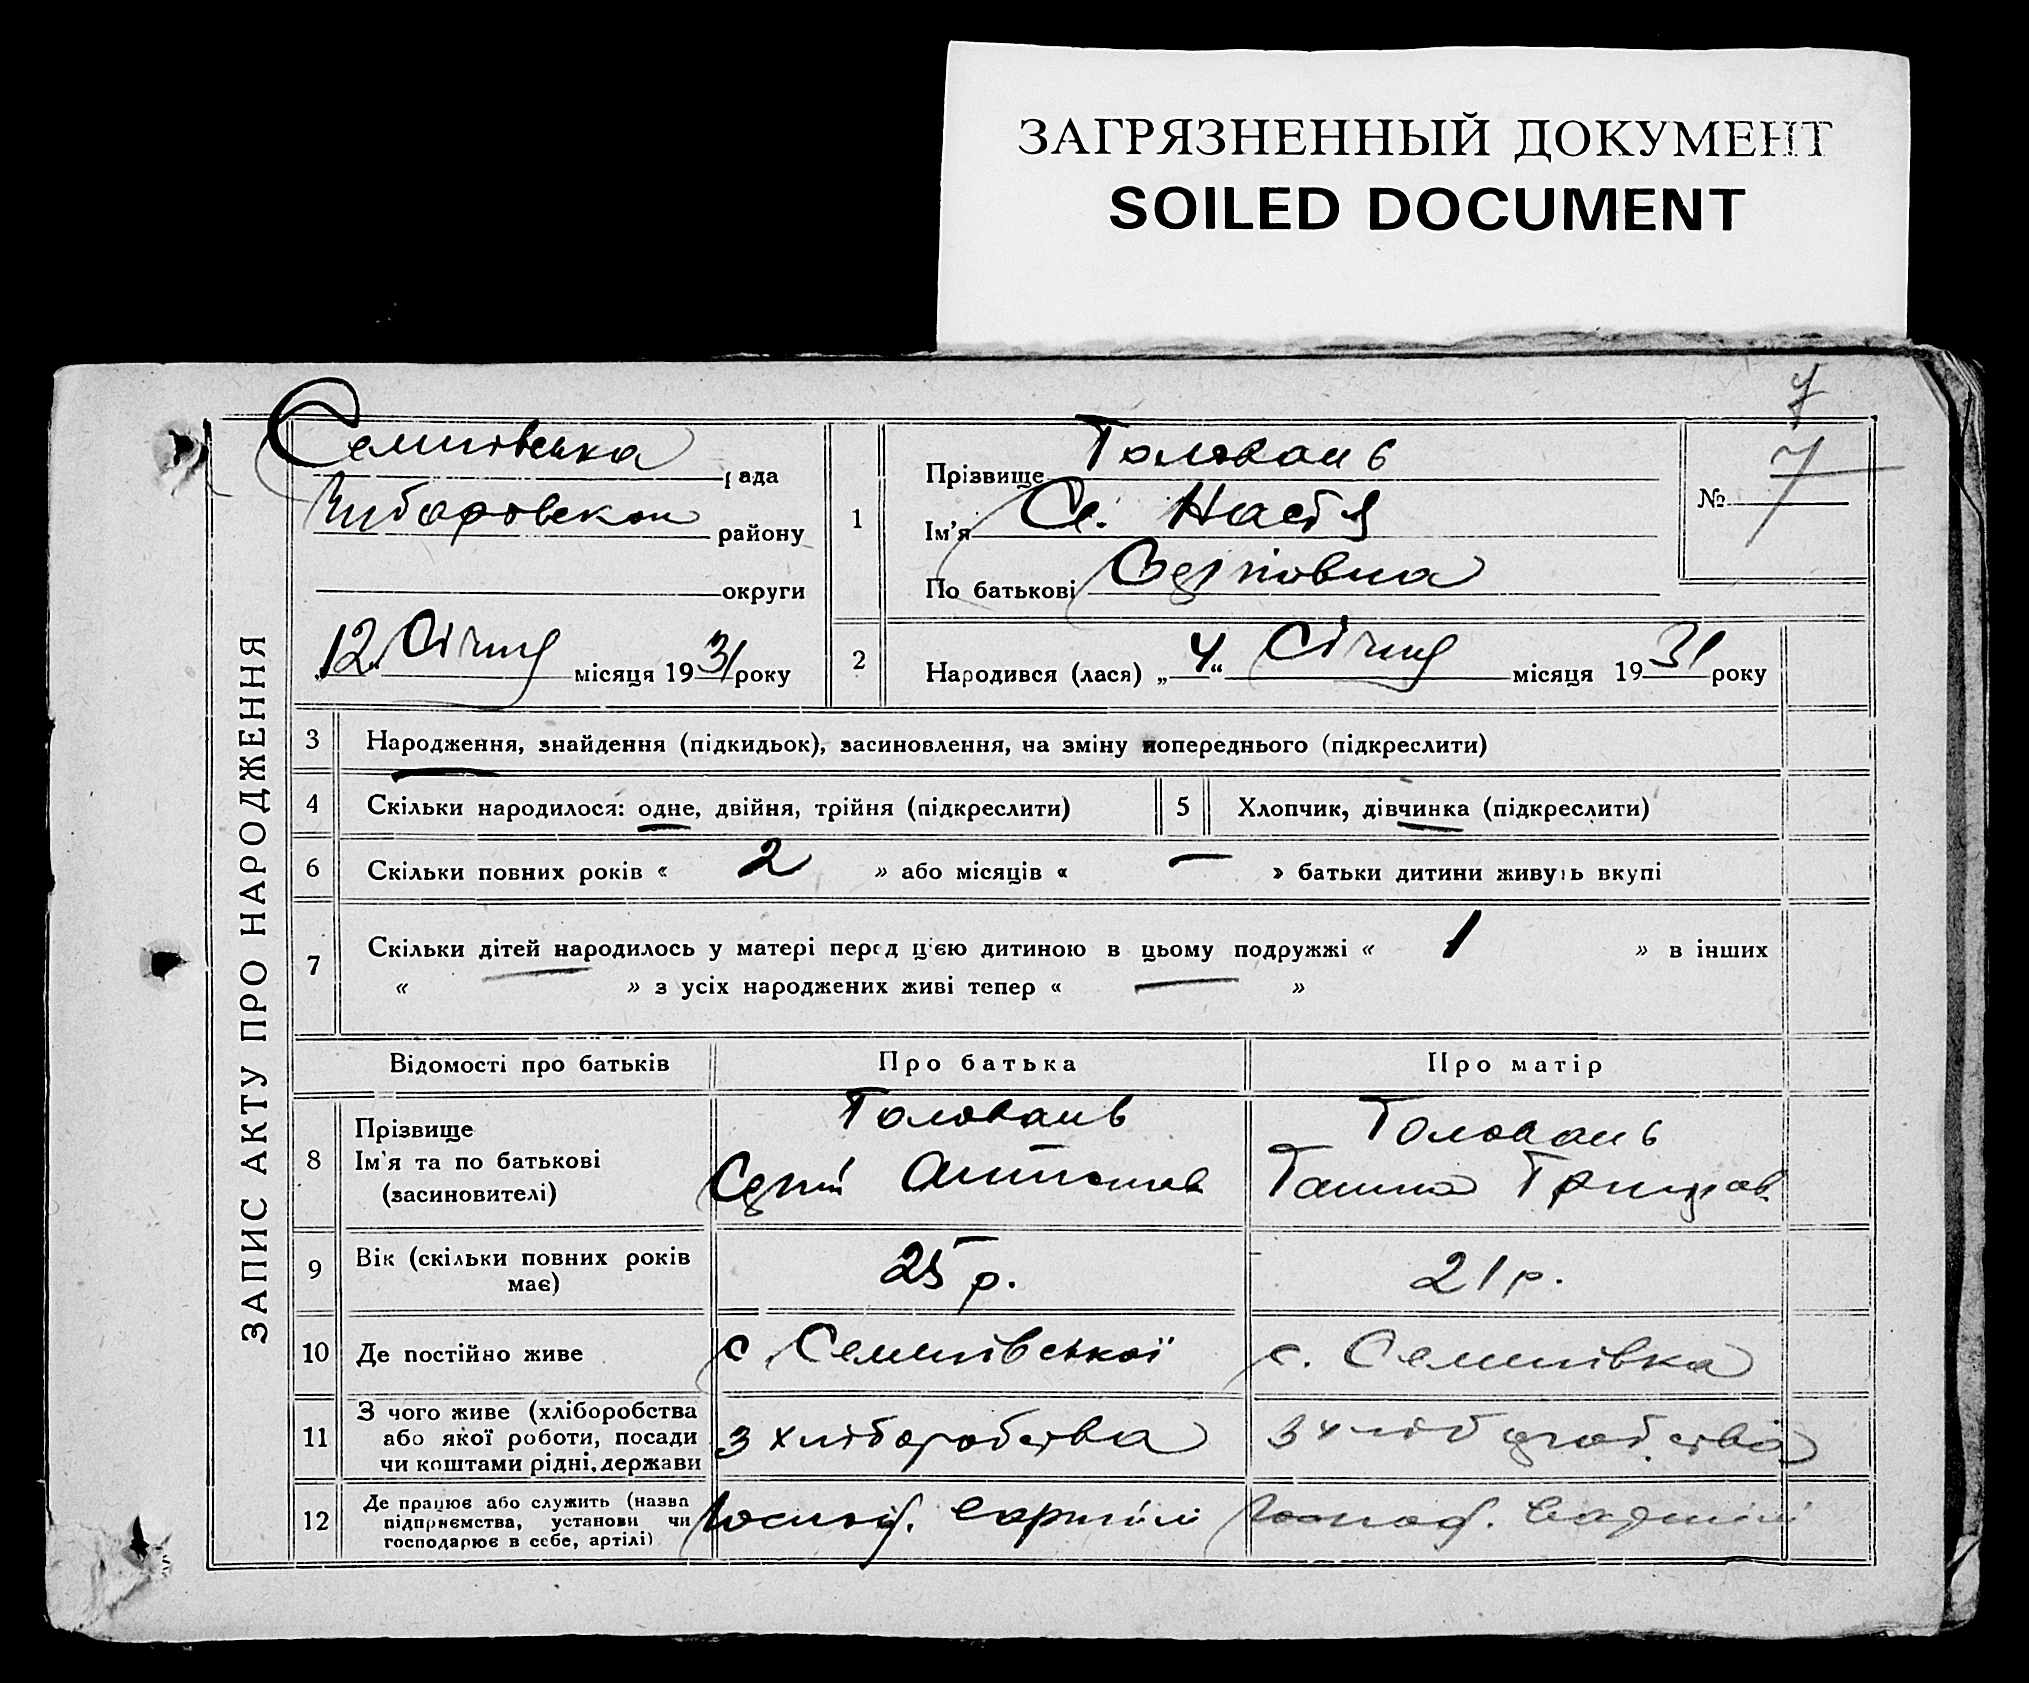 ЗАГРЯЗНЕННЫЙ ДОКУМЕНТ
SOILED DOCUMENT
7
ЗАПИС АКТУ ПРО НАРОДЖЕННЯ
Семенівська рада
району
округи
12 Січня місяця 1931 року
1
Прізвище Головань
Ім'я Настя
По батькові
№ 7
2
Народився (лася) „4“ Січня місяця 1931 року
3 Народження, знайдення (підкидьок), засиновлення, на зміну попереднього (підкреслити)
4 Скільки народилося: одне, двійня, трійня (підкреслити)
5 Хлопчик, дівчинка (підкреслити)
6 Скільки повних років « 2 » або місяців « — » батьки дитини живуть вкупі
7 Скільки дітей народилось у матері перед цією дитиною в цьому подружжі « 1 » в інших
« — » з усіх народжених живі тепер « — »
Відомості про батьків Про батька Про матір
8 Прізвище
Ім'я та по батькові
(засиновителі)
Головань
Головань
Ганна
9 Вік (скільки повних років
має)
25 р.
21 р.
10 Де постійно живе
с. Семенівської
с. Семенівка
11 З чого живе (хліборобства
або якої роботи, посади
чи коштами рідні, держави
з хліборобства
з хліборобства
12 Де працює або служить (назва
підприємства, установи чи
господарює в себе, артілі)
в артілі